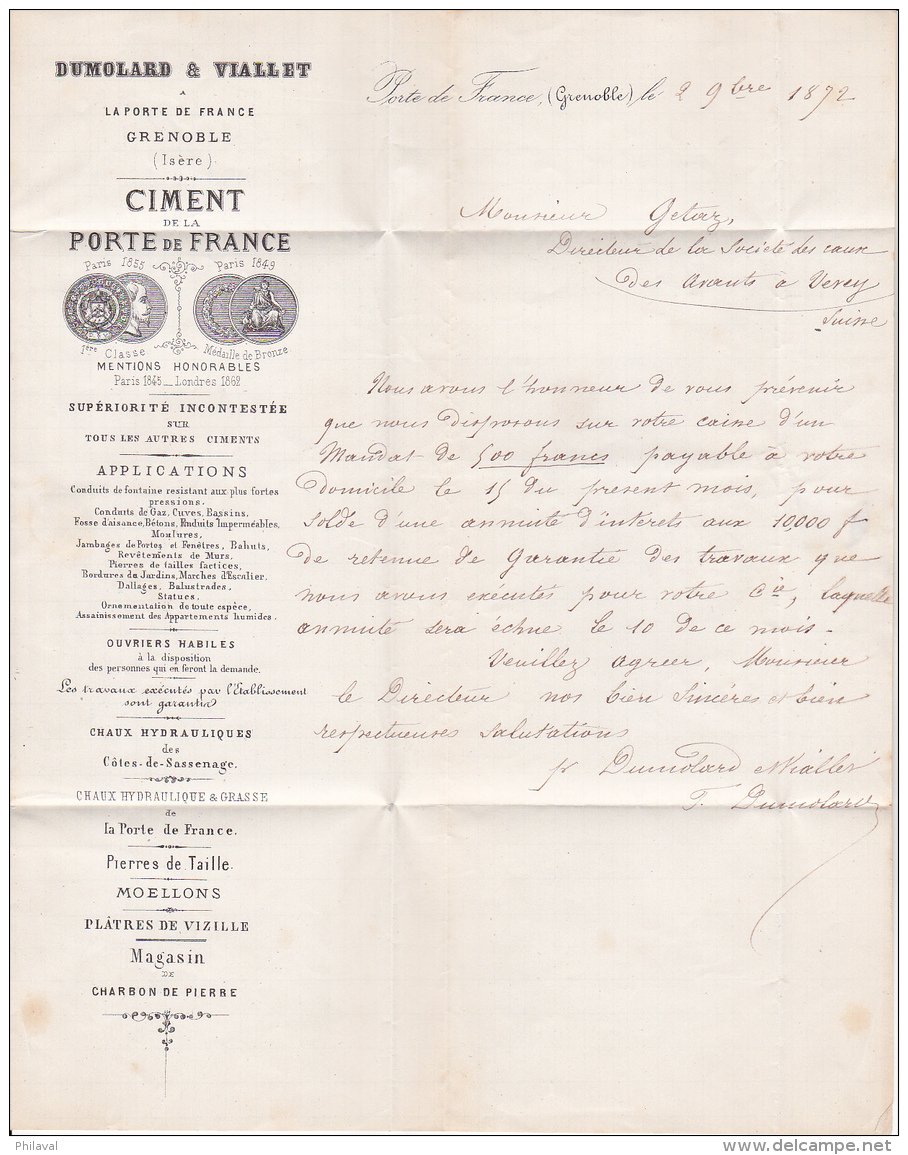 DUMOLARD & VIALLET
A
LA PORTE DE FRANCE
GRENOBLE
(Isère)
CIMENT
DE LA
PORTE DE FRANCE
Paris 1855 Paris 1849
1ère Classe Médaille de Bronze
MENTIONS HONORABLES
Paris 1845 _ Londres 1862
SUPÉRIORITÉ INCONTESTÉE
SUR
TOUS LES AUTRES CIMENTS
APPLICATIONS
Conduits de fontaine resistant aux plus fortes
pressions.
Conduits de Gaz, Cuves, Bassins,
Fosse d'aisance, Bétons, Enduits Imperméables,
Moulures,
Jambages de Portes et Fenêtres, Bahuts,
Revêtements de Murs,
Pierres de tailles factices,
Bordures de Jardins, Marches d'Escalier,
Dallages, Balustrades,
Statues,
Ornementation de toute espèce,
Assainissement des Appartements humides.
OUVRIERS HABILES
à la disposition
des personnes qui en feront la demande.
Les travaux exécutés par l'Etablissement
sont garantis
CHAUX HYDRAULIQUES
des
Côtes-de-Sassenage.
CHAUX HYDRAULIQUE & GRASSE
de
la Porte de France.
Pierres de Taille.
MOELLONS
PLÂTRES DE VIZILLE
Magasin
DE
CHARBON DE PIERRE
Porte de France, (Grenoble) le 2 9bre 1872
Monsieur Getaz,
Directeur de la Société des eaux
des Avants à Vevey
Suisse
Nous avons l'honneur de vous prévenir
que nous disposons sur votre caisse d'un
Mandat de 500 francs payable à votre
domicile le 15 du present mois, pour
solde d'une annuité d'interets aux 10,000 f
de retenue de Garantie des travaux que
nous avons exécutés pour votre Cie, laquelle
annuité sera échue le 10 de ce mois.
Veuillez agréer, Monsieur
le Directeur nos bien sincéres et bien
respectueuses salutations
pr Dumolard & Viallet
F. Dumolard
Philaval
www.delcampe.net